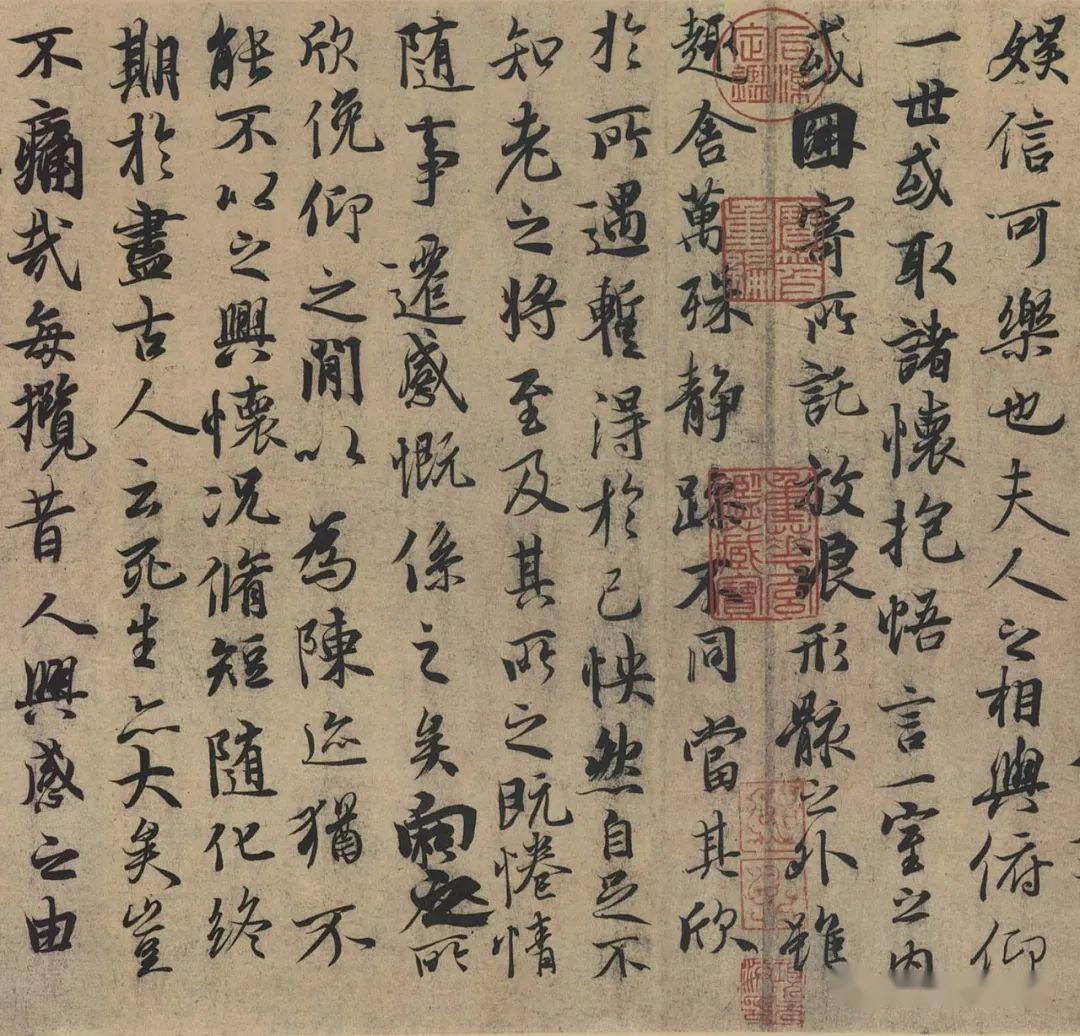 娛信可樂也夫人之相與俯仰
一世或取諸懷抱悟言一室之內
或因寄所託放浪形骸之外雖
趣舍萬殊静躁不同當其欣
於所遇暫得於己怏然自足不
知老之將至及其所之既惓情
隨事遷感慨係之矣向之所
欣俛仰之閒以為陳迹猶不
能不以之興懷況脩短隨化終
期於盡古人云死生亦大矣豈
不痛哉每攬昔人興感之由